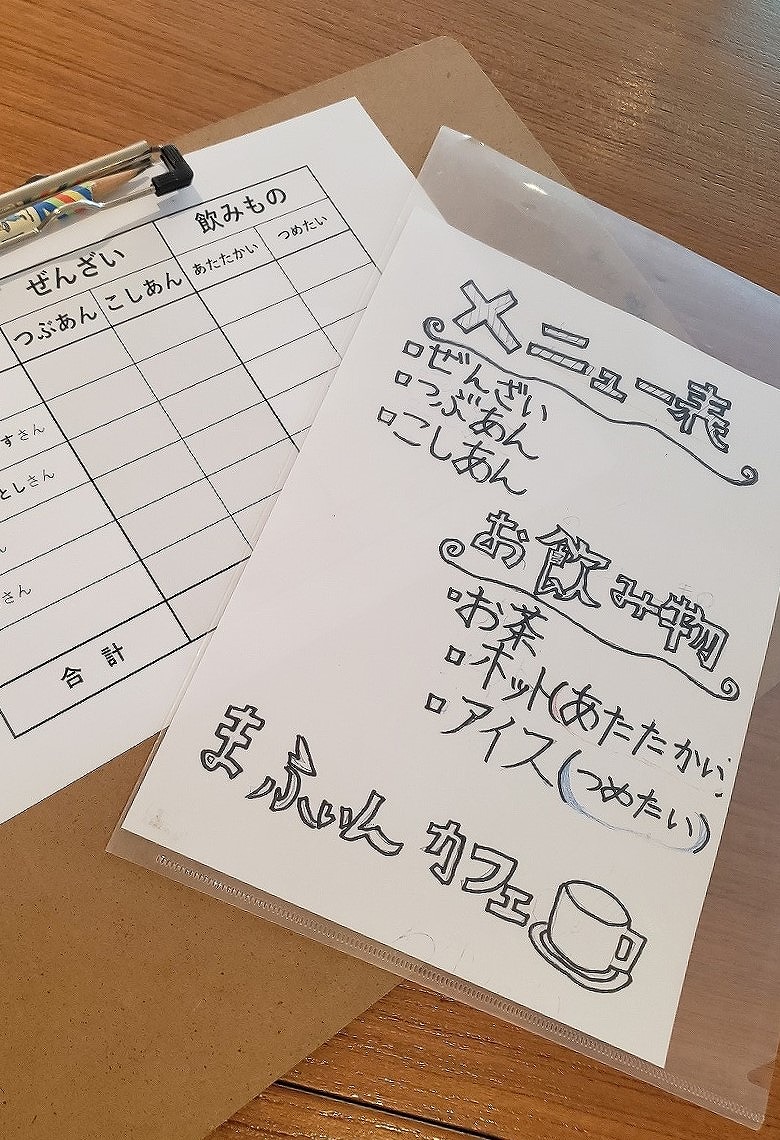 ぜんざい 飲みもの
つぶあん こしあん あたたかい つめたい
すさん
としさん
さん
合計
メニュー表
ぜんざい
つぶあん
こしあん
お飲み物
お茶
ホット(あたたかい)
アイス(つめたい)
まふぃん カフェ